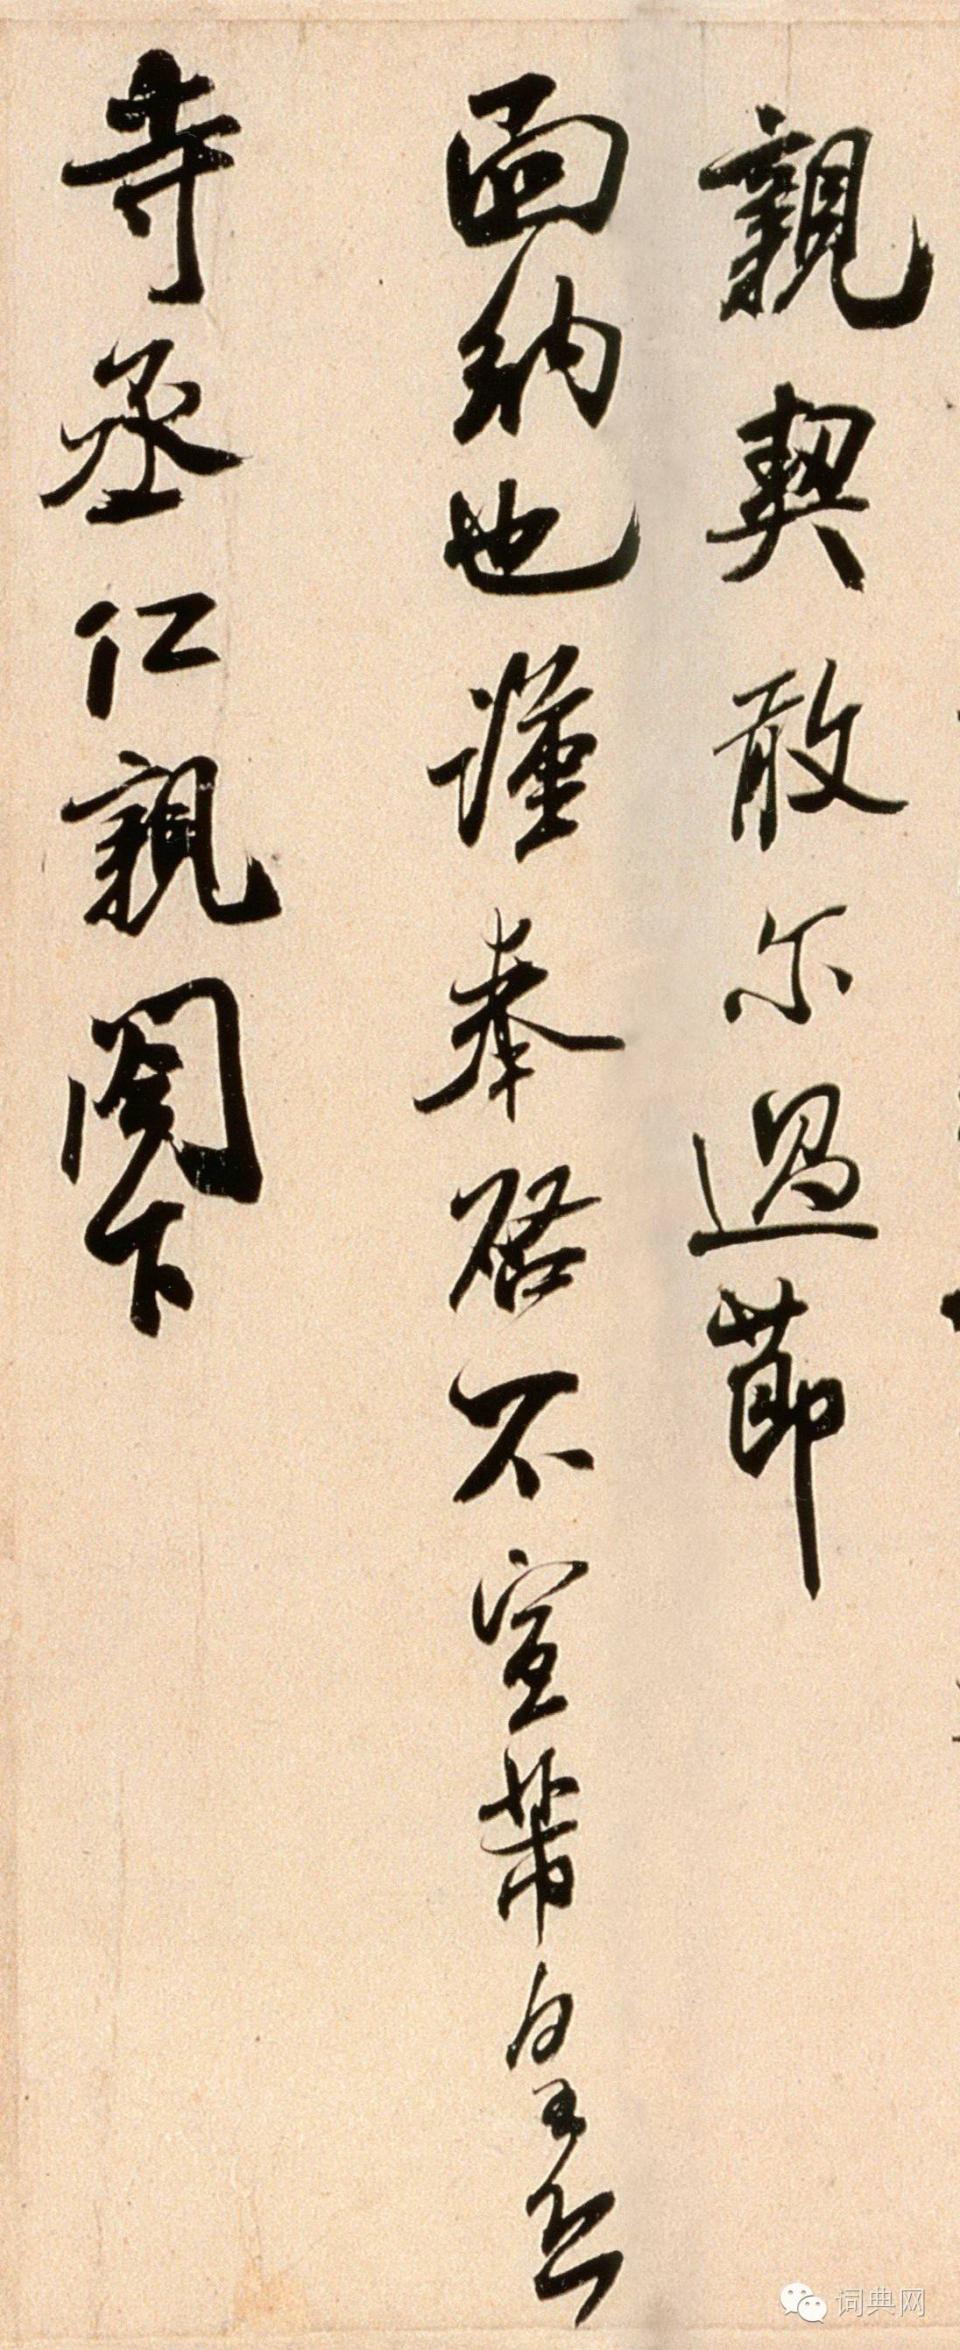 親契敢尔過節
面納也謹奉啓不宣芾皇恐
寺丞仁親閣下
词典网